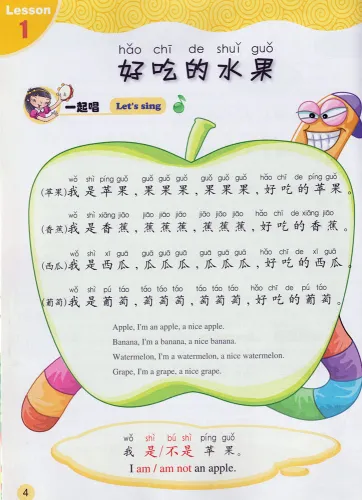 Lesson
1
hǎo chī de shuǐ guǒ
好吃的水果
一起唱 Let's sing
wǒ shì píng guǒ guǒ guǒ guǒ guǒ guǒ guǒ hǎo chī de píng guǒ
(苹果)我是苹果,果果果,果果果,好吃的苹果。
wǒ shì xiāng jiāo jiāo jiāo jiāo jiāo jiāo jiāo hǎo chī de xiāng jiāo
(香蕉)我是香蕉,蕉蕉蕉,蕉蕉蕉,好吃的香蕉。
wǒ shì xī guā guā guā guā guā guā guā hǎo chī de xī guā
(西瓜)我是西瓜,瓜瓜瓜,瓜瓜瓜,好吃的西瓜。
wǒ shì pú táo táo táo táo táo táo táo hǎo chī de pú táo
(葡萄)我是葡萄,萄萄萄,萄萄萄,好吃的葡萄。
Apple, I'm an apple, a nice apple.
Banana, I'm a banana, a nice banana.
Watermelon, I'm a watermelon, a nice watermelon.
Grape, I'm a grape, a nice grape.
wǒ shì bú shì píng guǒ
我 是/不是 苹果。
I am / am not an apple.
4